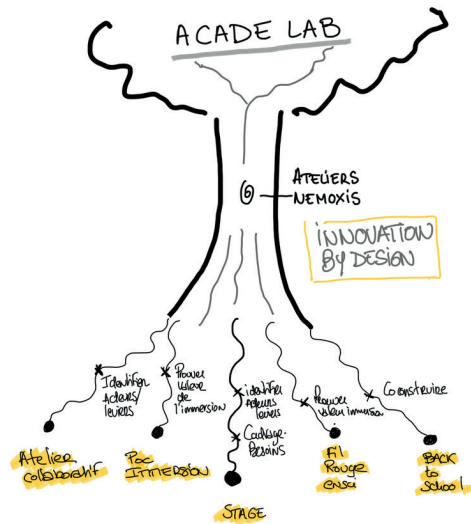 ACADE LAB
ATELIERS
NEMOXIS
INNOVATION
BY DESIGN
Identifier
Acteurs/
leviers
Prouver
valeur
de
l'immersion
identifier
Acteurs
leviers
Cadrage-
Besoins
Prouver
valeur immersion
Co construire
Atelier
collaboratif
Poc
IMMERSION
STAGE
Fil
Rouge
ensci
BACK
to
school